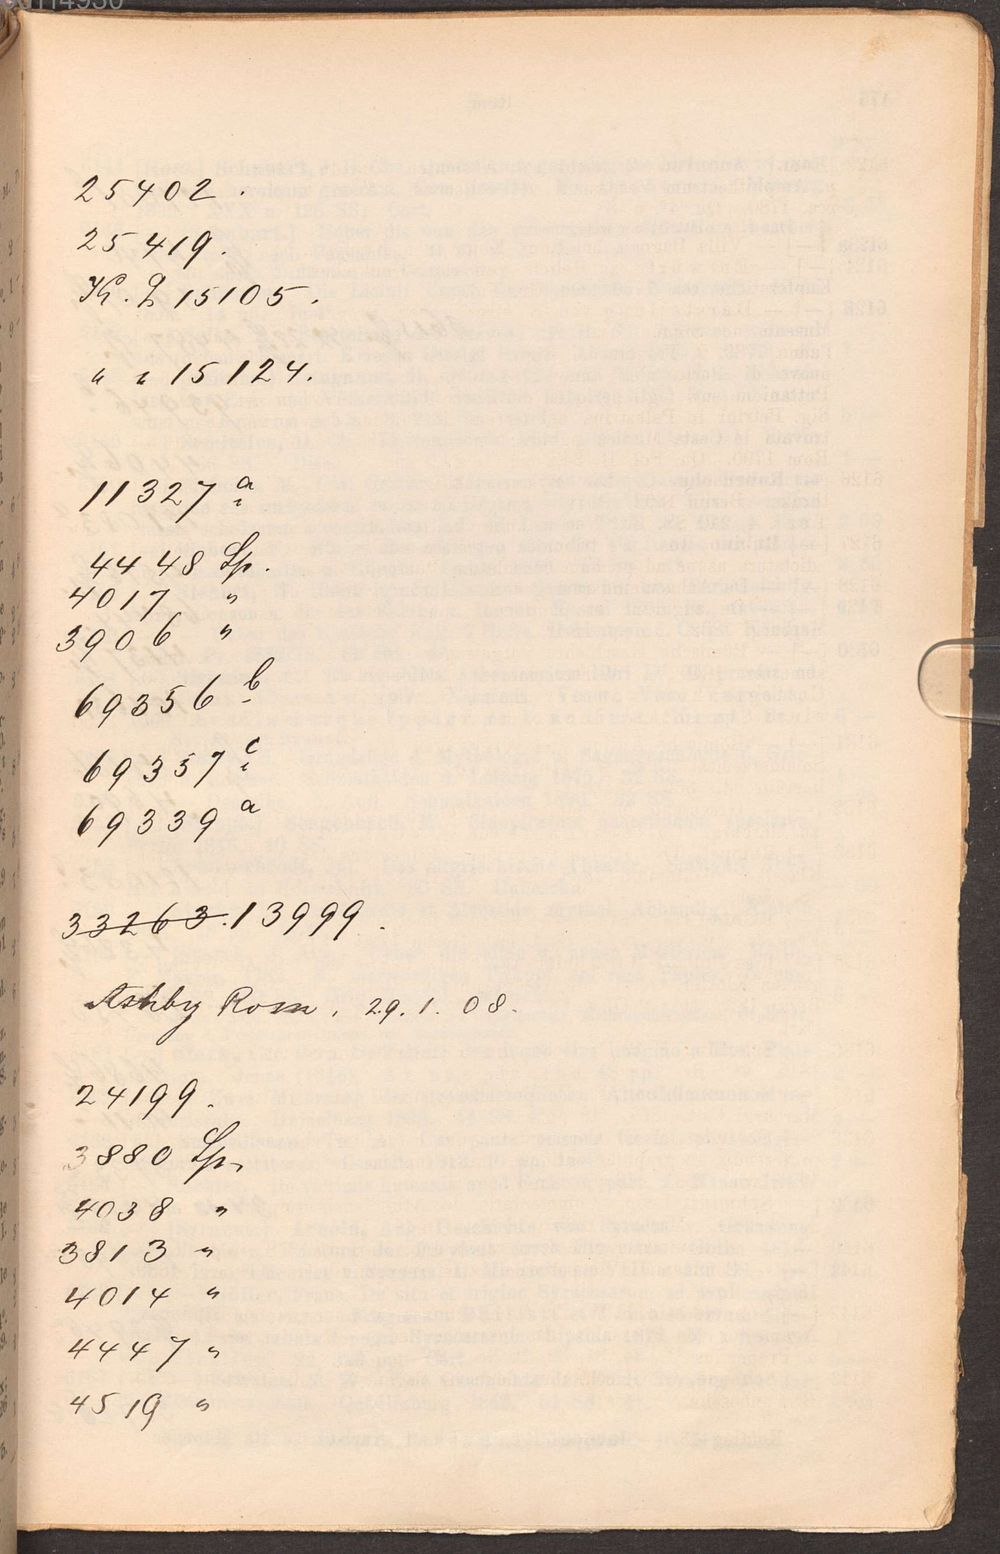 25402.
25419.
K. L 15105.
" " 15124.
11327 a
4448 Sp.
4017 "
3906 "
69356 b
69357 c
69339 a
33263. 13999.
Ashby Rom. 29. 1. 08.
24199.
3880 Sp.
4038 "
3813 "
4014 "
4447 "
4519 "